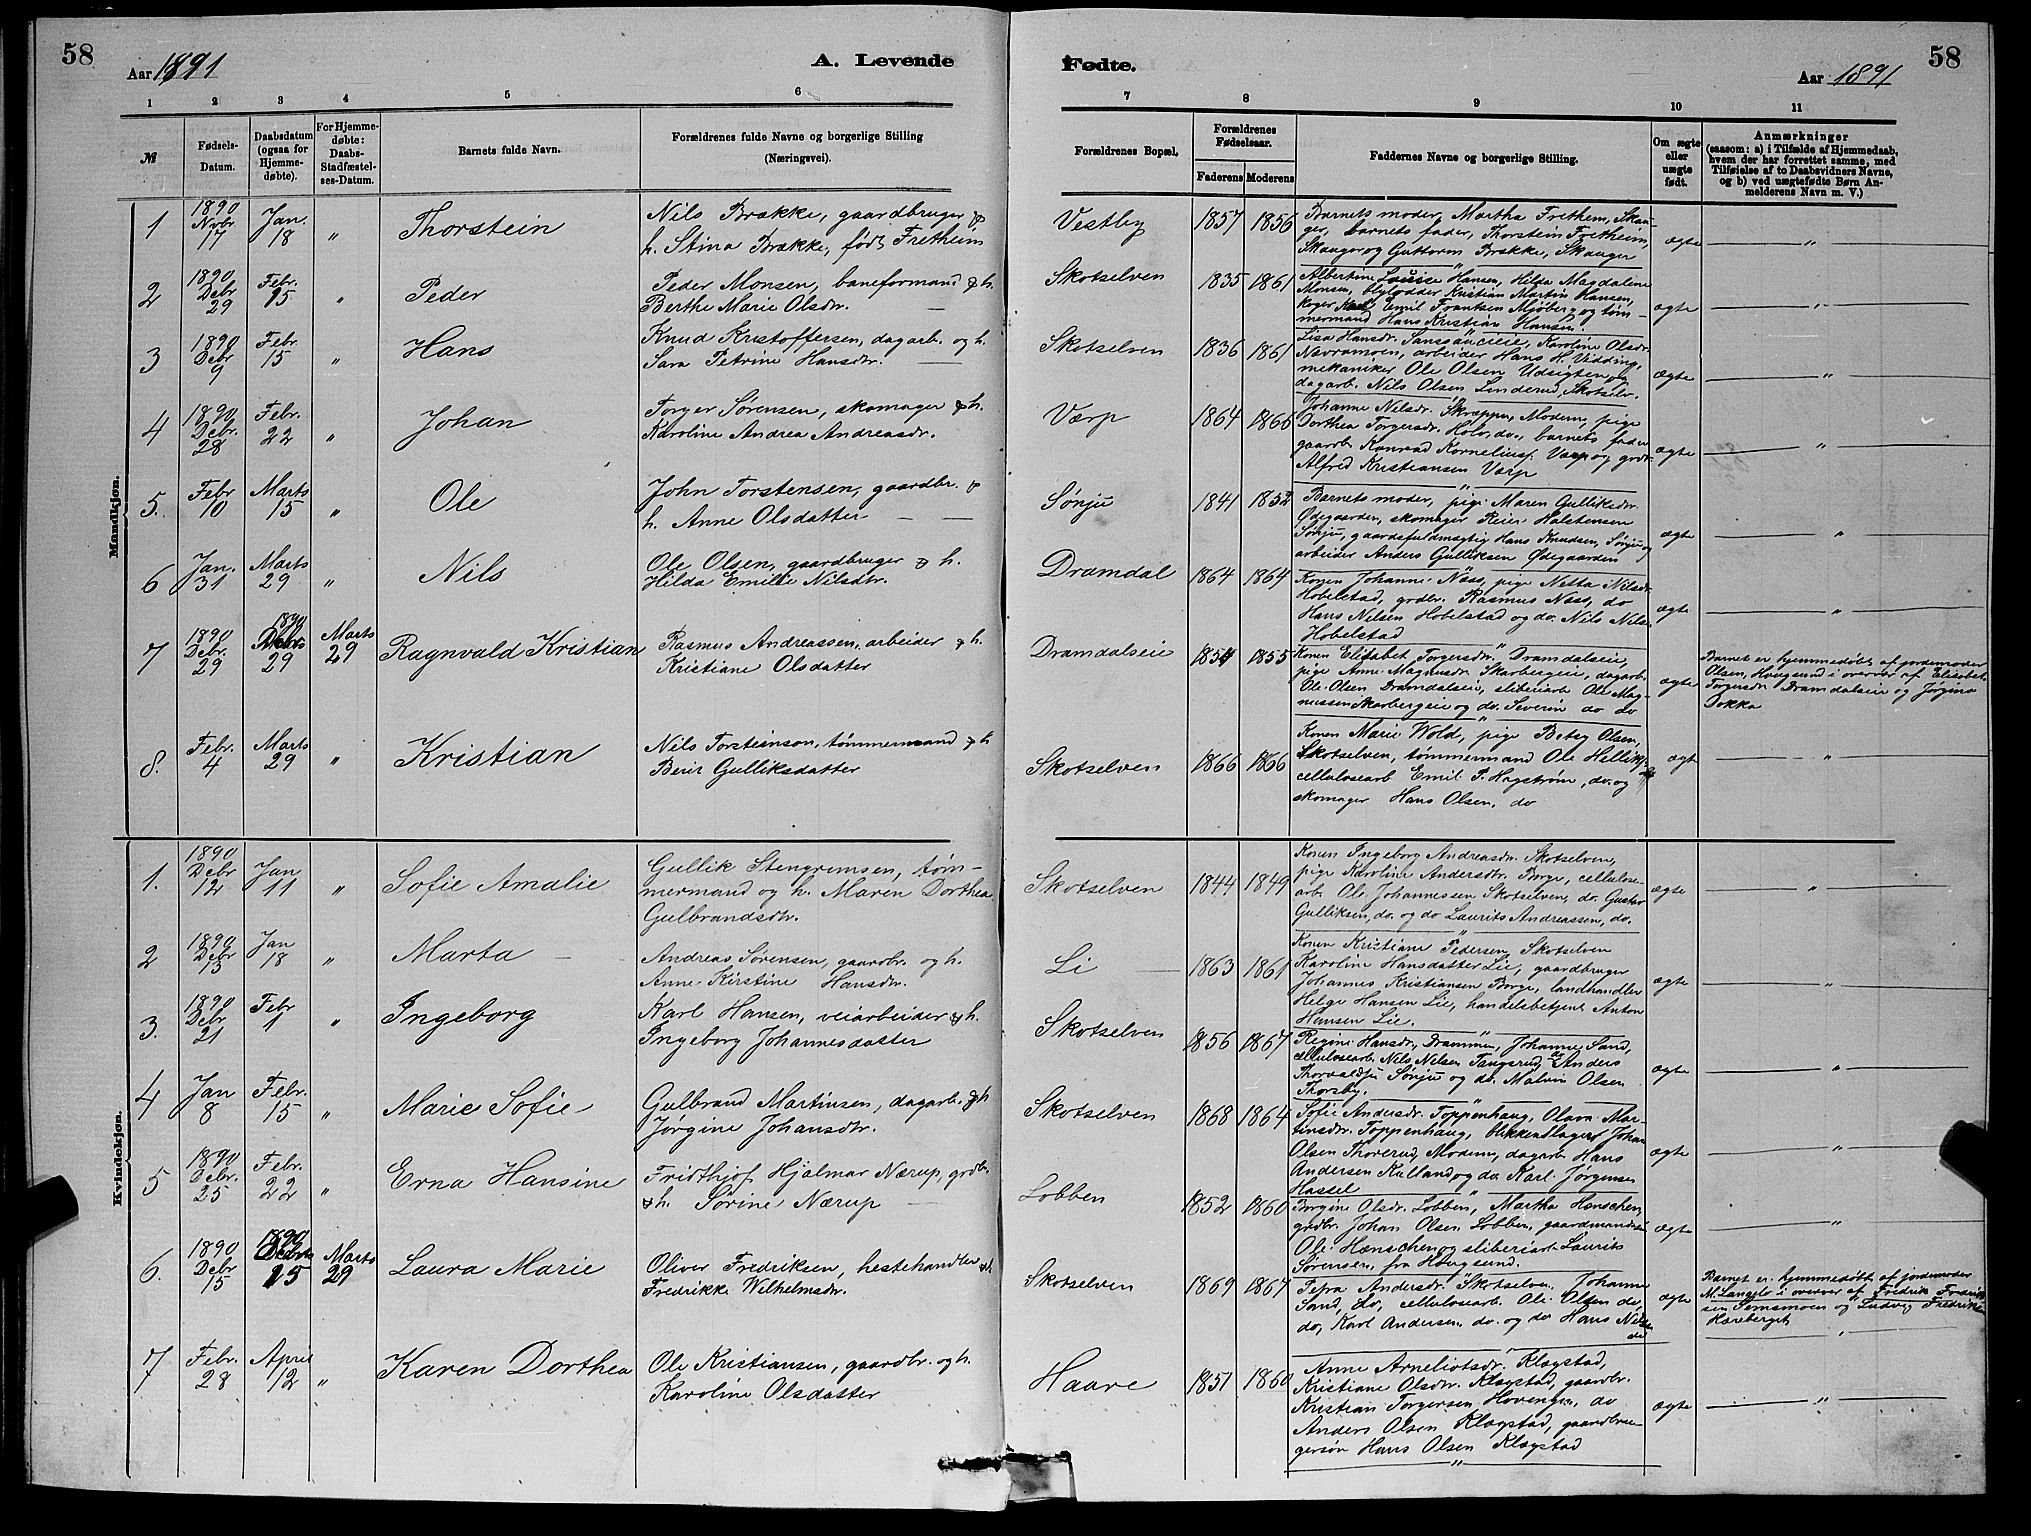 58
Aar 1891
A. Levende
1 2 3 4 5 6
№
Fødsels-
Datum.
Daabsdatum
(ogsaa for
Hjemme-
døbte).
For Hjemme-
døbte:
Daabs-
Stadfæstel-
ses-Datum.
Barnets fulde Navn.
Forældrenes fulde Navne og borgerlige Stilling
(Næringsvei).
Mandkjøn.
1 1890 Nvbr. 17 Jan. 18 " Thorstein
Nils Brække, gaardbruger &
h. Stina Brække, født Fretheim
2 1890 Debr 29 Febr. 15 " Peder
Peder Monsen, baneformand & h.
Berthe Marie Olsdtr.
3 1890 Debr 9 Febr 15 " Hans
Knud Kristoffersen, dagarb. og h.
Sara Petrine Hansdtr.
4 1890 Debr. 28 Febr. 22 " Johan
Torger Sørensen, skomager & h.
Karoline Andrea Andreasdr.
5. Febr 10 Marts 15 " Ole
John Torstensen, gaardbr. &
h. Anne Olsdatter
6 Jan. 31 Marts 29 " Nils
Ole Olsen, gaardbruger & h.
Hilda Emilie Nilsdtr.
7 1890 Debr. 29 1890 Debr 29 Marts 29 Ragnvald Kristian
Rasmus Andreassen, arbeider & h.
Kristiane Olsdatter
8. Febr. 4 Marts 29 " Kristian
Nils Torsteinson, tømmermand & h
Berit Gulliksdatter
Kvindekjøn.
1. 1890 Debr 12 Jan 11 " Sofie Amalie
Gullik Stengrimsen, tøm-
mermand og h. Maren Dorthea
Gulbrandsdtr.
2 1890 Debr 13 Jan 18 " Marta
Andreas Sørensen, gaardbr. og h.
Anne Kirstine Hansdr.
3. 1890 Debr 21 Febr 1 " Ingeborg
Karl Hansen, veiarbeider & h.
Ingeborg Johannesdatter
4 Jan 8 Febr. 15 " Marie Sofie
Gulbrand Martinsen, dagarb. & h
Jørgine Johansdtr.
5 1890 Debr. 25 Febr. 22 " Erna Hansine
Fridthjof Hjalmar Nærup, grdbr.
& h. Sørine Nærup
6. 1890 Debr 15 1890 Debr 15 Marts 29 Laura Marie
Oliver Fredriksen, hestehandler & h.
Fredrikke Wilhelmsdr.
7 Febr. 28 April 12 " Karen Dorthea
Ole Kristiansen, gaardbr. og h.
Karoline Olsdatter
Fødte.
58
Aar 1891
7 8 9 10 11
Forældrenes Bopæl.
Forældrenes
Fødselsaar.
Faderens Moderens
Faddernes Navne og borgerlige Stilling.
Om ægte
eller
uægte
født.
Anmærkninger
(saasom: a) i Tilfælde af Hjemmedaab,
hvem der har forrettet samme, med
Tilføielse af to Daabsvidners Navne,
og b) ved uægtefødte Børn An-
melderens Navn m. V.)
Vestby 1857 1856
Barnets moder, Martha Frethem, Skau-
ger, barnets fader, Thorstein Fretheim,
Skauger og Guttorm Brække, Skauger
ægte "
Skotselven 1835 1861
Albertine Louise Hansen, Hilda Magdalene
Monsen, blylodder Kristian Martin Hansen,
Emil Frantsen Mjøberg og tøm-
mermand Hans Kristian Hansen
ægte "
Skotselven 1836 1861
Lisa Hansdr. Karoline Olsdr.
Navramoen, arbeider Hans H. Vidding,
mekaniker Ole Olsen Udsigten og
dagarb. Nils Olsen Linderud, Skotselv.
ægte "
Værp 1864 1866
Johanne Nilsdr. Skræppa, Modum, pige
Dorthea Torgersdr. Holo, do, barnets fader
gaarb. Konrad Korneliusf. Værp og grdr.
Alfred Kristiansen Værp
ægte "
Sønju 1841 1852
Barnets moder, pige Maren Gulliksdr.
Ødegaarden, skomager Reier Halstensen
Sønju, gaardsfuldmægtig Hans Knudsen, Sønju og
arbeider Anders Gulliksen Ødegaarden
ægte "
Dramdal 1864 1864
Konen Johanne Næss, pige Netta Nilsdr.
Hobelstad, grdbr. Rasmus Næss, do
Hans Nilsen Hobelstad og do. Nils Nilsen
Hobelstad
ægte "
Dramdalseie 1854 1855
Konen Elisabet Torgersdr. Dramdalseie,
pige Anne Magnusdr. Skarbergeie, dagarb.
Ole Olsen Dramdalseie, sliberiarb Ole Mag-
nussen Skarbergeie og do. Severin do do
ægte
Barnet er hjemmedøbt af jordemoder
Olsen, Hougsund i overvær af Elisabet
Torgersdr. Dramdalseie og Jørgine
Dokka
Skotselven 1866 1866
Konen Marie Wold, pige Betsy Olsen,
Skotselven, tømmermand Ole Helliks
cellulosearb Emil P. Hagstrøm, do. og
skomager Hans Olsen, do
ægte "
Skotselven 1844 1849
Konen Ingeborg Andreasdr. Skotselven,
pige Karoline Andersdtr. Borge, cellulose-
arb. Ole Johannessen Skotselven, do. Gustav
Gulliksen, do. og do Laurits Andreassen, do.
ægte "
Li 1863 1861
Konen Kristiane Pedersen, Skotselven
Karoline Hansdatter Lie, gaardbruger
Johannes Kristiansen Borge, landhandler
Helge Hansen Lie, handelsbetjent Anton
Hansen Lie.
ægte "
Skotselven 1856 1867
Regine Hansdr, Drammen, Johanne Sand,
cellulosearb. Nils Nilsen Tangerud, Anders
Thorvaldsn Sønju og do. Malvin Olsen
Thorsby.
ægte "
Skotselven 1868 1864
Sofie Andersdr. Toppenhaug, Olava Mar-
tinsdtr. Toppenhaug, blikkenslager Johan
Olsen Thorerud, Modum, dagarb Hans
Andersen Kulland og do. Karl Jørgensen
Hassel
ægte "
Lobben 1852 1860
Børgine Olsdr. Lobben, Martha Hænschen,
grdbr. Johan Olsen Lobben, gaardmandssøn
Ole Hænschen og sliberiarb Laurits
Sørensen, fra Hougsund.
ægte "
Skotselven 1869 1867
Petra Andersdr. Skotselven, Johanne
Sand, do, cellulosearb. Ole Olsen do,
do, Karl Andersen, do. og do Hans Nilsen
do
ægte
Barnet er hjemmedøbt af jordemoder
M. Langelo i overvær af Fredrik Fredrik-
sen Semsmoen og Ludvig Fredriks
Hæreberget
"
Haare 1851 1860
Anne Arneliotsdr. Klægstad,
Kristiane Olsdtr. Klægstad, gaardbr.
Kristian Torgersen Hovenga, do
Anders Olsen Klægstad, gaardbru-
gersøn Hans Olsen Klægstad
ægte "